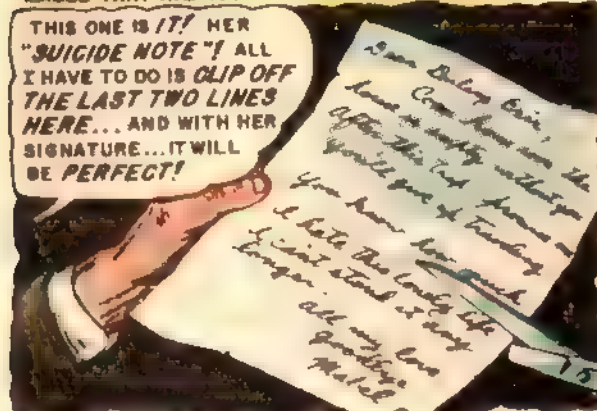 THIS ONE IS IT! HER
"SUICIDE NOTE"! ALL
I HAVE TO DO IS CLIP OFF
THE LAST TWO LINES
HERE... AND WITH HER
SIGNATURE... IT WILL
BE PERFECT!
Come home soon the
is empty without you
After this
give up
You know how much
I hate this lonely life
I can't stand it any
longer.
All my love
goodbye